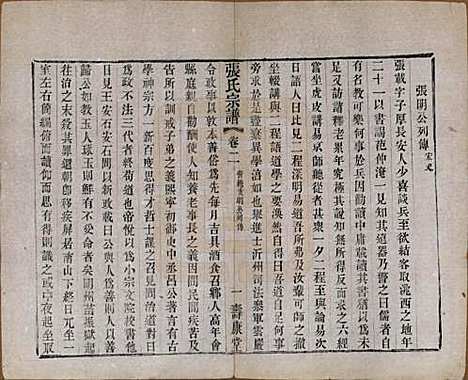 張明公列傳 宋史
張載字子厚長安人少喜談兵至欲結客取洮西之地年
二十一以書謁范仲淹一見知其遠器乃警之曰儒者自
有名教可樂何事於兵因勸讀中庸載讀其書猶以爲未
足又訪諸釋老累年究極其說知無所得反而求之六經
嘗坐虎皮講易京師聽從者甚衆一夕二程至與論易次
日語人曰比見二程深明易道吾所弗及汝輩可師之
坐輟講與二程語道學之要渙然自信曰吾道自足何事
旁求於是盡棄異學淳如也舉進士祈州司法參軍雲巖
張氏宗譜 卷二 一 壽康堂
令政事以敦本善俗爲先每月吉具酒食召鄉人高年會
縣庭親自勸酬使人知養老事長之義因問民間疾苦及
告所以訓戒子弟之義熙寧初御史中丞呂公著言有古
學神宗方一新百度思得才哲士謀之召見問治道對曰
爲政不法三代者終苟道也帝悅以爲崇文院校書他
日見王安石
歸公如教玉人琢玉則
往治之末殺其罪還朝卽移疾屏居南山下終日危坐一
室左右簡編俯而讀仰而思有得則識之或中夜起坐取